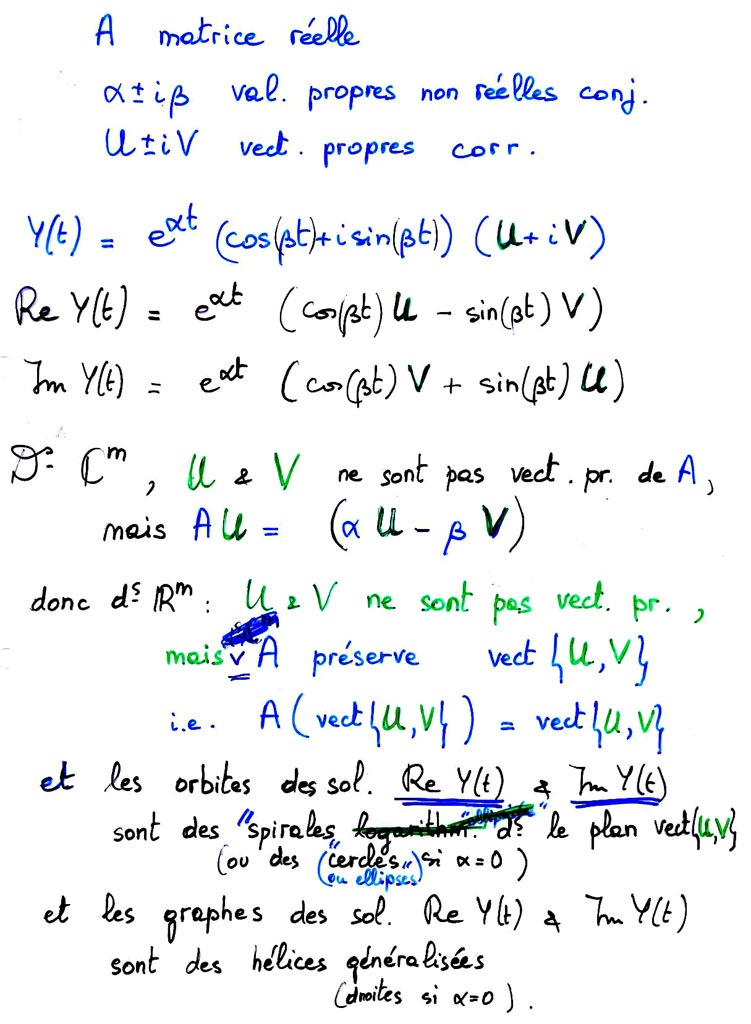 A matrice réelle
α ± iβ val. propres non réelles conj.
U ± iV vect. propres corr.
Y(t) = e^{αt} (cos(βt)+i sin(βt)) (U + iV)
Re Y(t) = e^{αt} (cos(βt) U − sin(βt) V)
Im Y(t) = e^{αt} (cos(βt) V + sin(βt) U)
Ds ℂ^m, U & V ne sont pas vect. pr. de A,
mais A U = (α U − β V)
donc ds ℝ^m : U & V ne sont pas vect. pr.,
mais A préserve vect {U, V}
i.e. A (vect{U, V}) = vect{U, V}
et les orbites des sol. Re Y(t) & Im Y(t)
sont des "spirales logarithm. ds le plan vect{U,V}
(ou des "cercles" si α=0)
(ou ellipses)
et les graphes des sol. Re Y(t) & Im Y(t)
sont des hélices généralisées
(droites si α=0).